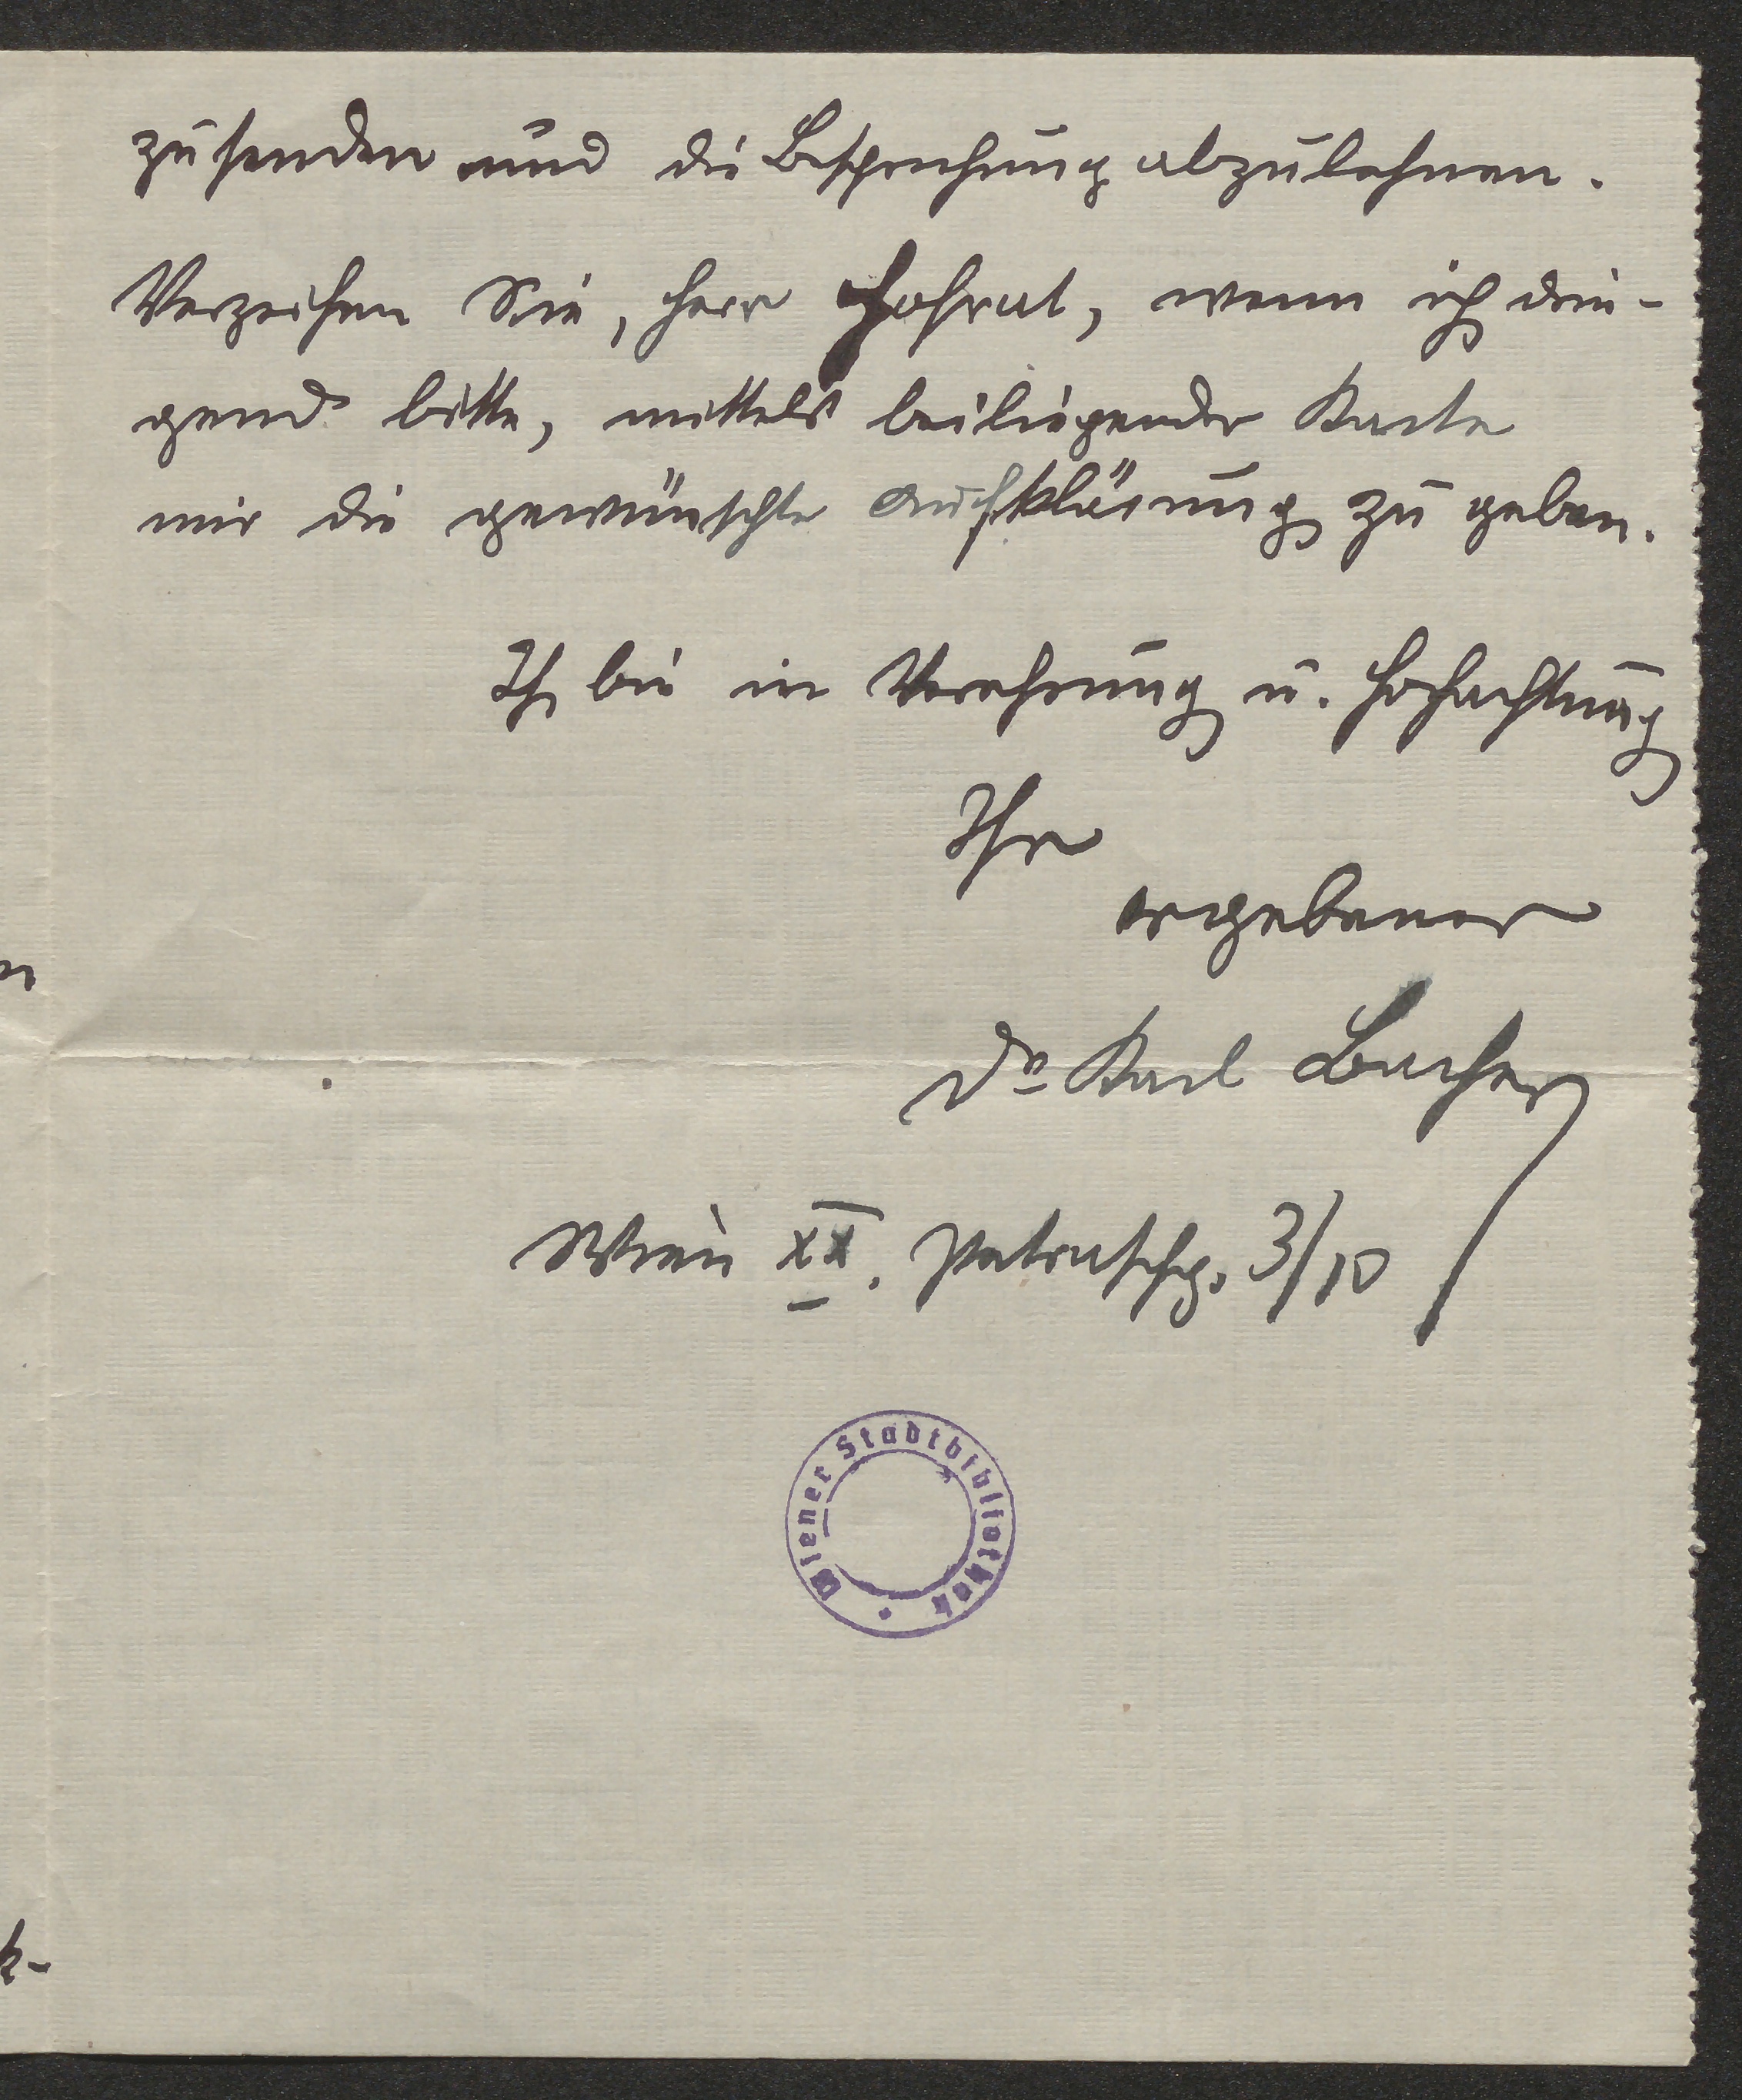 zusenden und die Besprechung abzulehnen.
Verzeihen Sie, Herr Hofrat, wenn ich drin-
gend bitte, mittels beiliegender Karte
mir die gewünschte Aufklärung zu geben.
Ich bin in Verehrung u. Hochachtung
Ihr
ergebener
Dr Karl Bacher
Wien XX. Petraschg. 3/10
Wiener Stadtbibliothek